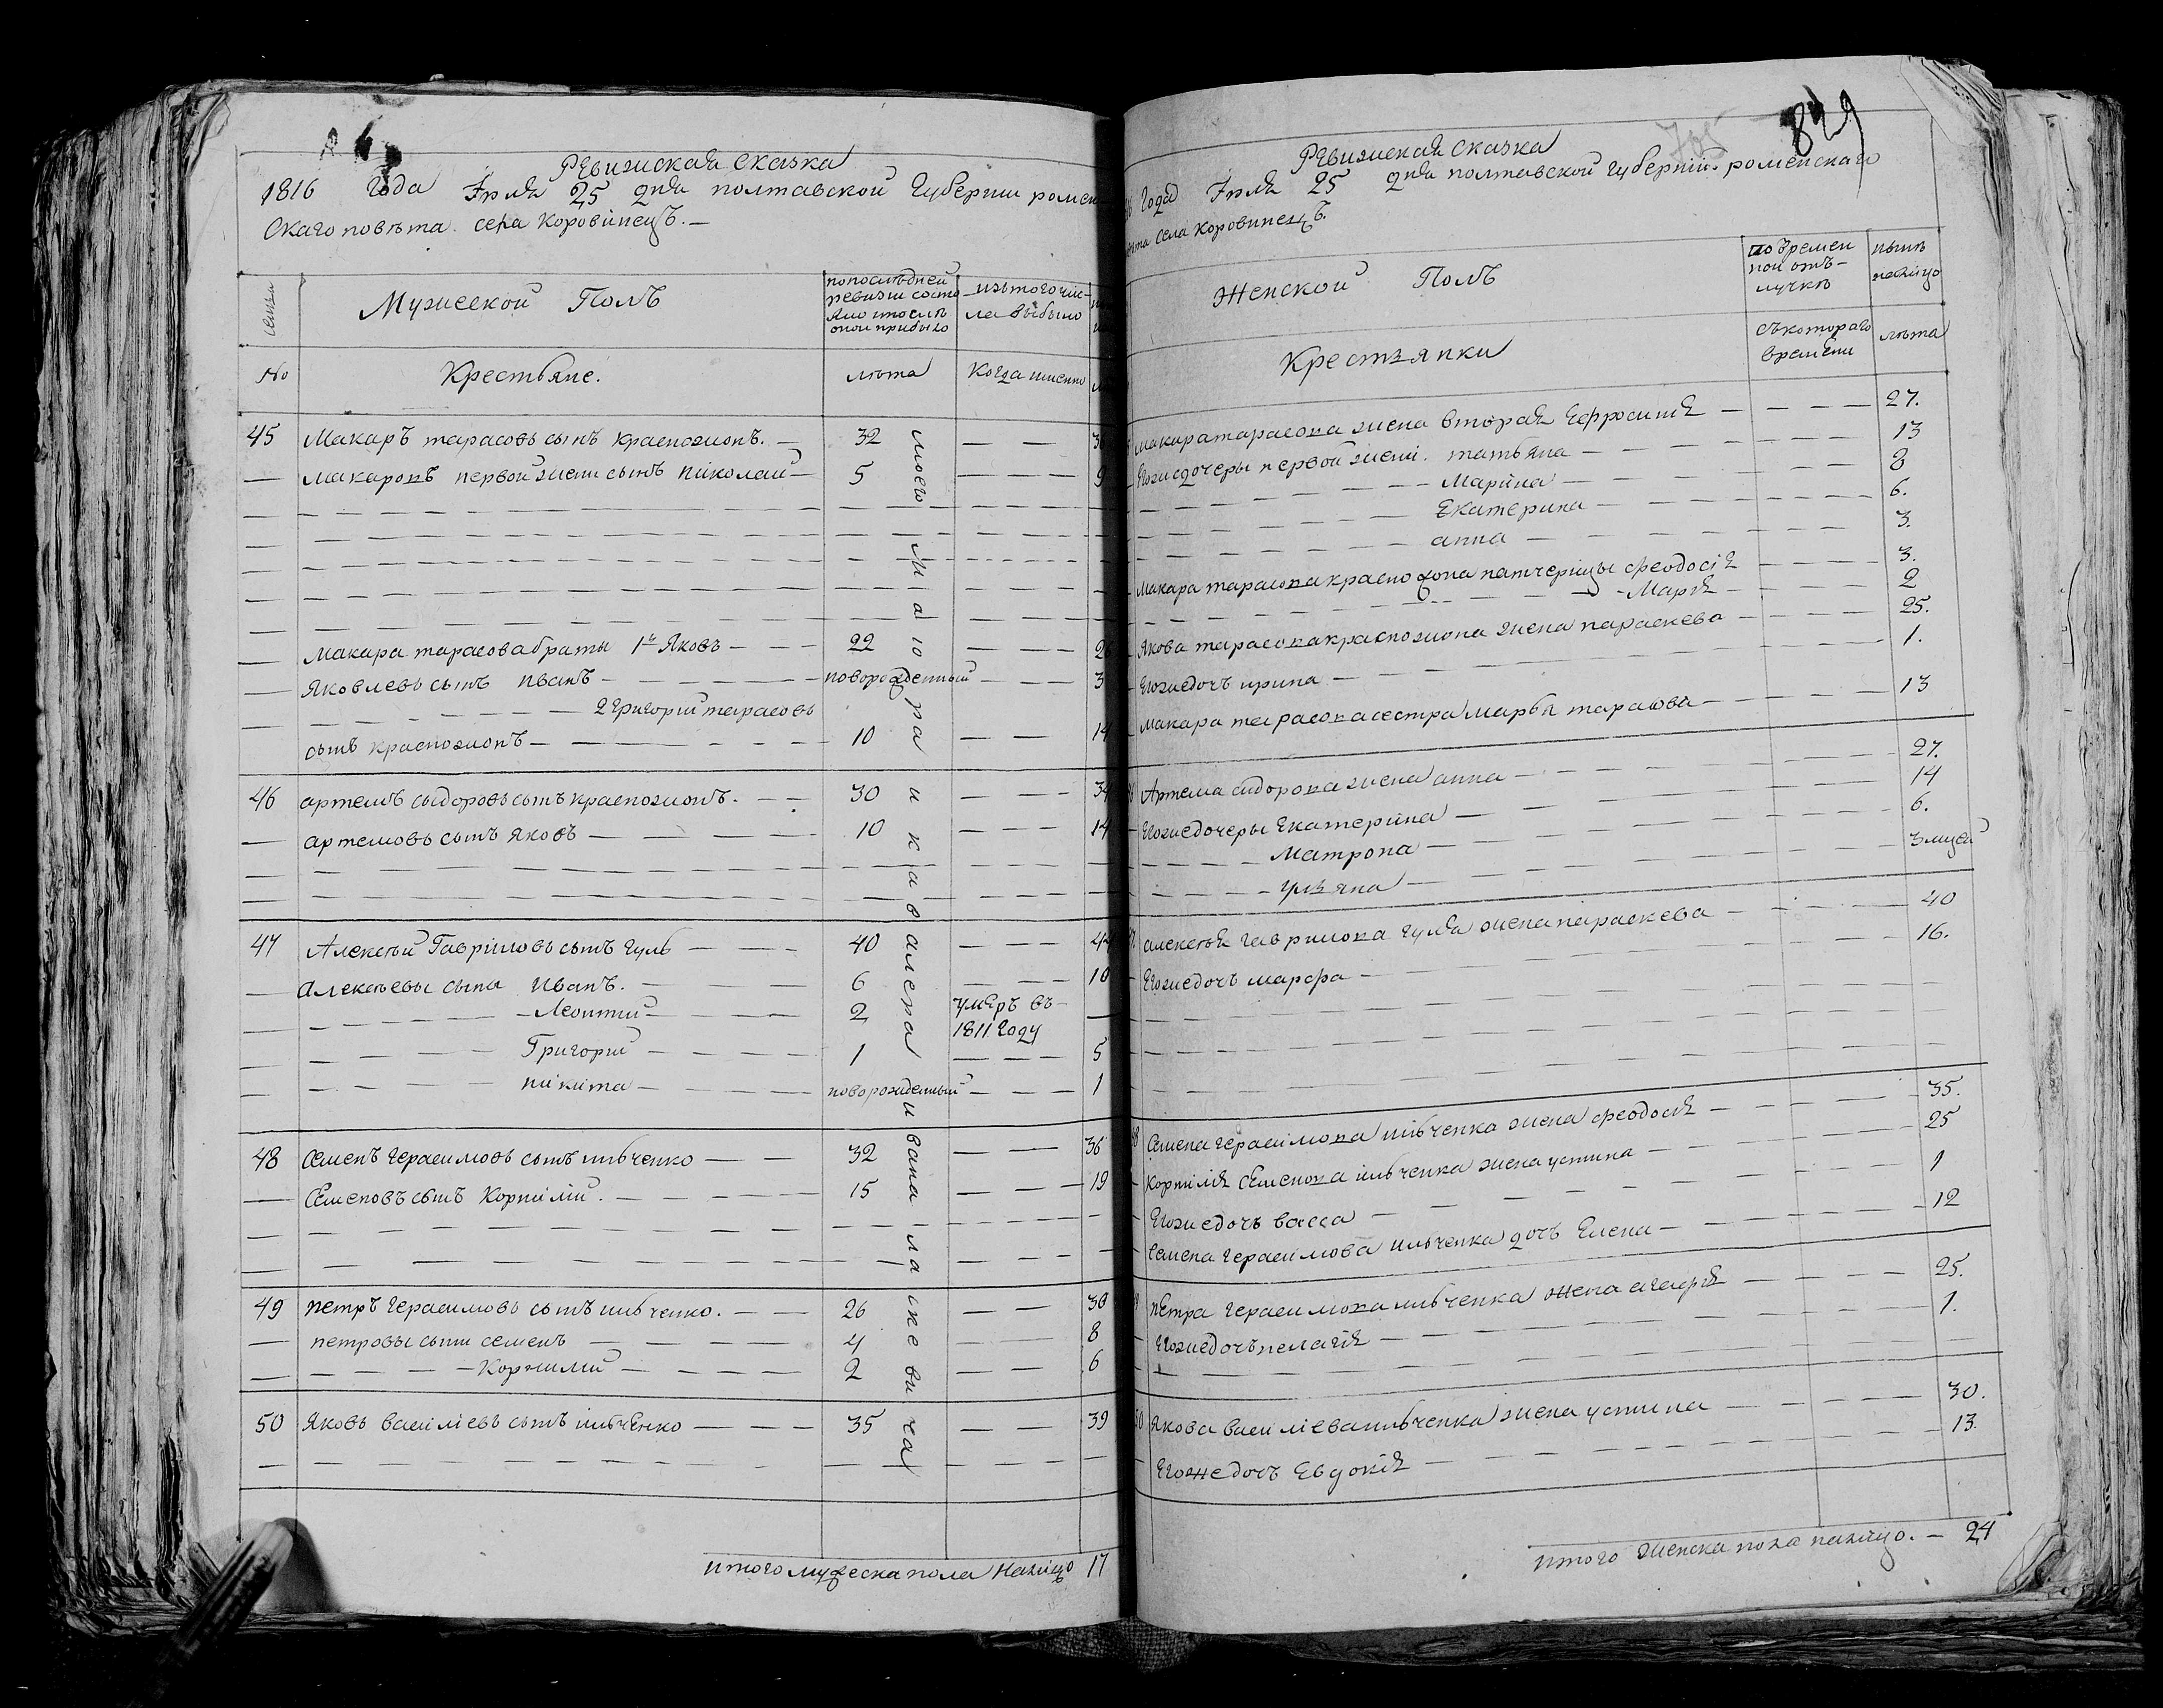 Ревижская сказка
1816 года Iюля 25 дня полтавской губернии ромен
скаго повѣта села Коровинецъ. —
семьи
Мужеской Полъ
по последней ревизии состояло и после оной прибыло
изъ того числа выбыло
№
Крестьяне.
лѣта
Когда именно
45 Макаръ тарасовъ сынъ красножонъ. — 32 — — 36
— Макаровъ первой жени сынъ николай — 5 — — — 9
— Макара тарасова браты 1й Яковъ — — — 22 — — — 26
— Яковлевъ сынъ иванъ — новорожденный — — — 3
— — — — 2 Григорій тарасовъ
сынъ красножонъ — — — 10 — — 14
46 артемъ сыдоровъ сынъ красножонъ. — — 30 — — — 34
— артемовъ сынъ яковъ — — — 10 — — — 14
47 Алексѣй Гавриловъ сынъ гуль — — — 40 — — — 44
— Алексѣевы сына Иванъ. — — — 6 — — — 10
— — — Леонтий — — — 2 умеръ въ
1811 году —
— — — Григорий — — — 1 — — — 5
— — — никита — — — новорожденный — — — 1
48 Семенъ герасимовъ сынъ ильченко — — 32 — — 36
— Семеновъ сынъ Корнилий. — — — 15 — — — 19
49 петръ герасимовъ сынъ ильченко. — — 26 — — 30
— петровы сыни семенъ — — — 4 — — 8
— — — Корнилий — — — 2 — — 6
50 Яковъ василиевъ сынъ ильченко — — — 35 — — 39
моего маиора и кавалера ивана ласкевича
итого мужеска пола Налицо 17
705
829
Ревижская сказка
года Iюля 25 дня полтавской губерній роменскаго
села Коровинецъ.
Женской Полъ
во времен
ной отъ-
лучке
ныне
налицо
съ котораго
времени
лѣта
Крестьянки
макара тарасова жена вторая Ефросиня — — — 27.
Егожедочеры первой жени. татьяна — — — 13
— — — Марина — — — 8
— — — Екатерина — — — 6.
— — — анна — — — 3.
Макара тарасова красножона патчерицы феодосiя — — — 3.
— — — Марiя — — — 2
Якова тарасова красножона жена параскева — — — 25.
Егожедочъ ирина — — — 1.
Макара тарасова сестра Марья тарасова — — — 13
Артема сидорова жена анна — — — 27.
Егожедочеры Екатерина — — — 14
— — — Матрона — — — 6.
— — — ульяна — — — 3 мцей
алексѣя гаврилова гуля жена параскева — — — 40
Егожедочъ марфа — — — 16.
Семена герасимова ильченка жена феодосия — — — 35.
Корнилiя Семенова ильченка жена устина — — — 25
Егожедочъ васса — — — 1
Семена герасимова ильченка дочъ Елена — — — 12
петра герасимова ильченка жена агафiя — — — 25.
Егожедочъ пелагiя — — — 1.
Якова василиева ильченка жена устина — — — 30.
Егожедочъ Евдокiя — — — 13.
итого женска пола налицо. — 24